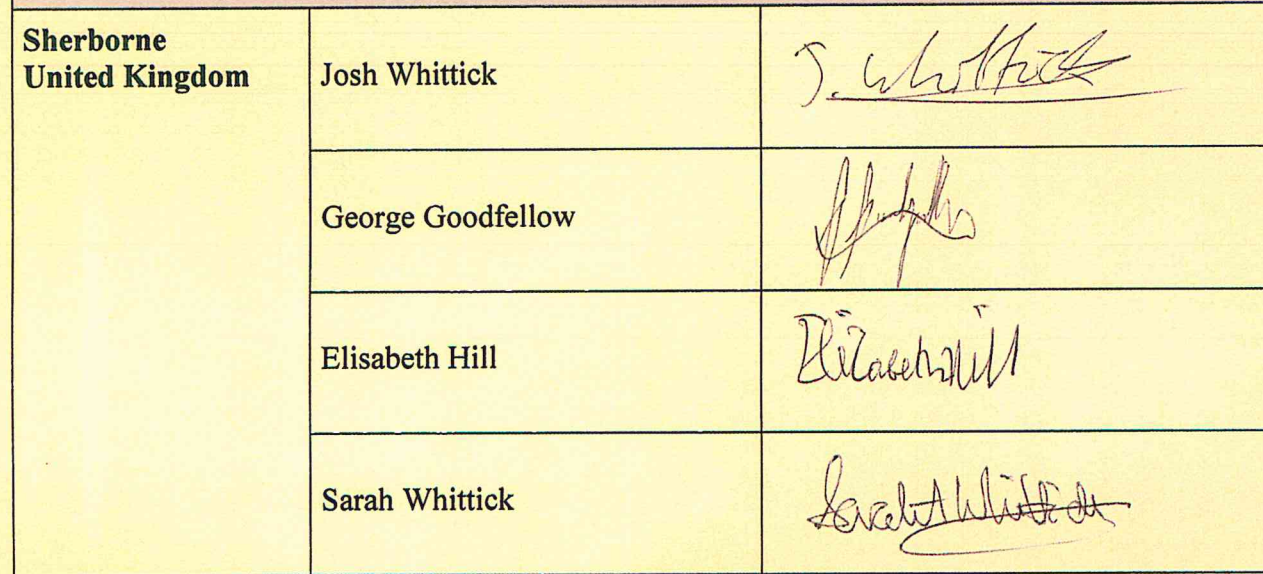 Sherborne
United Kingdom
Josh Whittick
J. Whittick
George Goodfellow
Elisabeth Hill
Elizabeth Hill
Sarah Whittick
Sarah Whittick